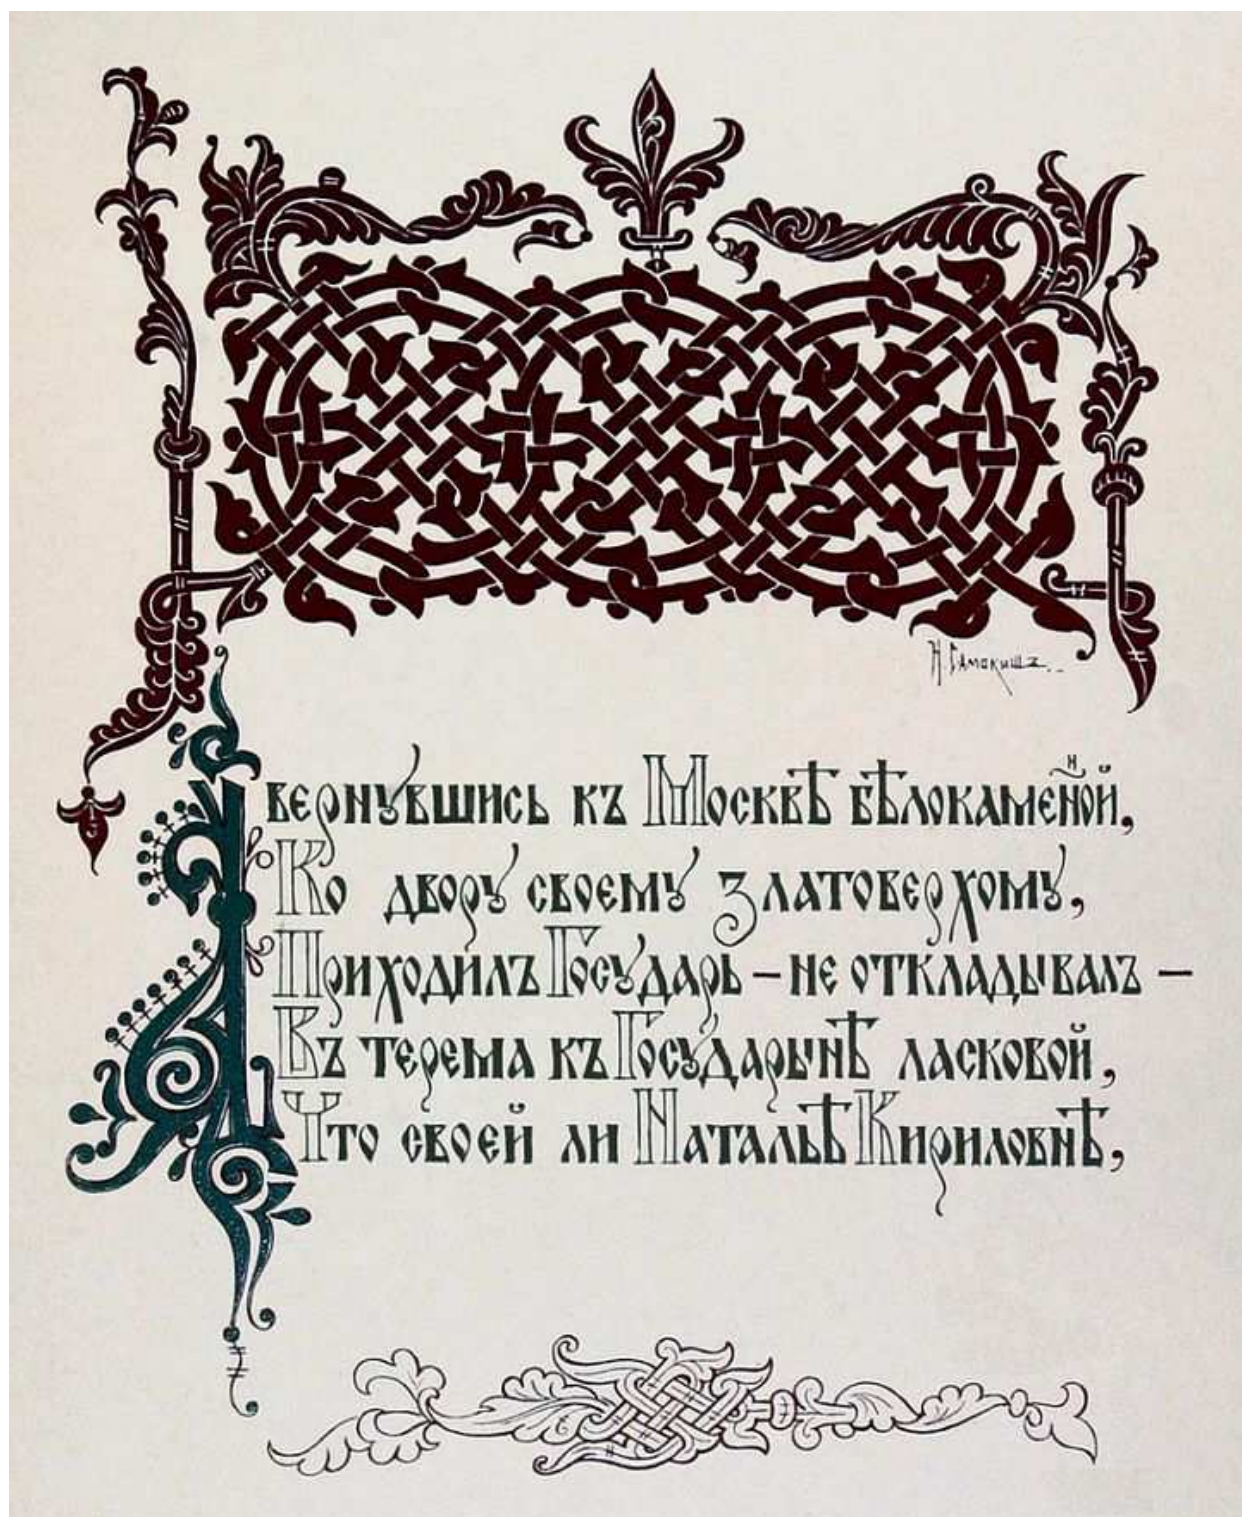 Н. Самокишъ
А вернувшись къ Москвѣ бѣлокаменной,
Ко двору своему златоверхому,
Приходилъ Государь — не откладывалъ —
Въ терема къ Государынѣ ласковой,
Что своей ли Натальѣ Кириловнѣ,